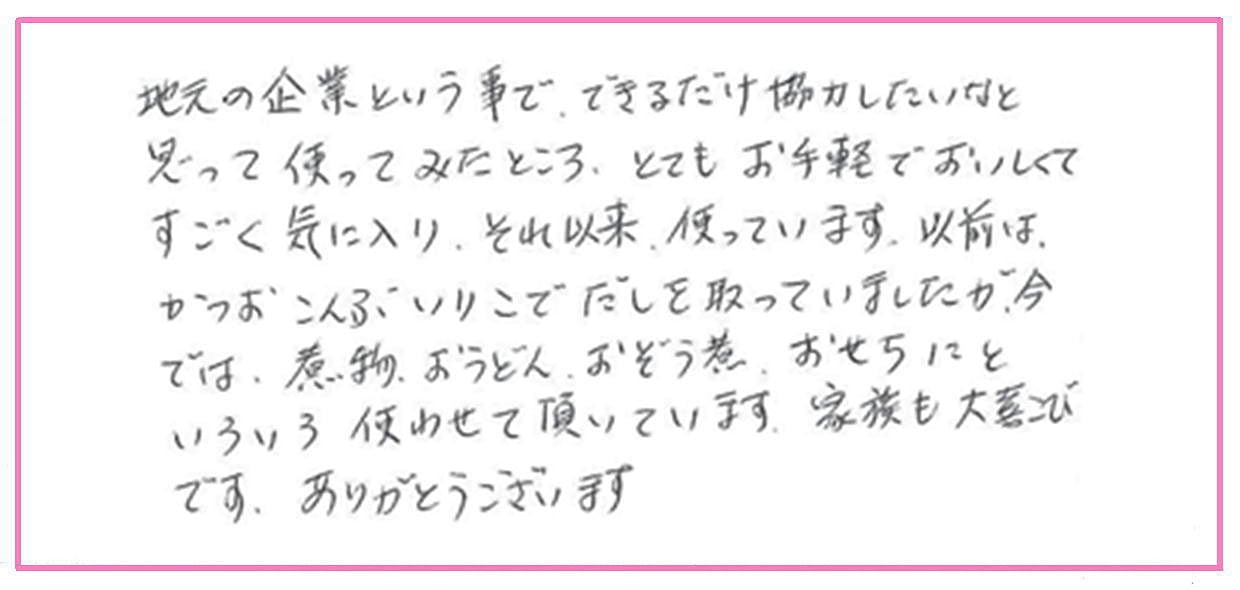 地元の企業という事で、できるだけ協力したいなと
思って使ってみたところ、とてもお手軽でおいしくて
すごく気に入り、それ以来、使っています。以前は、
かつおこんぶいりこでだしを取っていましたが、今
では、煮物、おうどん、おぞう煮、おせちにと
いろいろ使わせて頂いています。家族も大喜こび
です。ありがとうございます